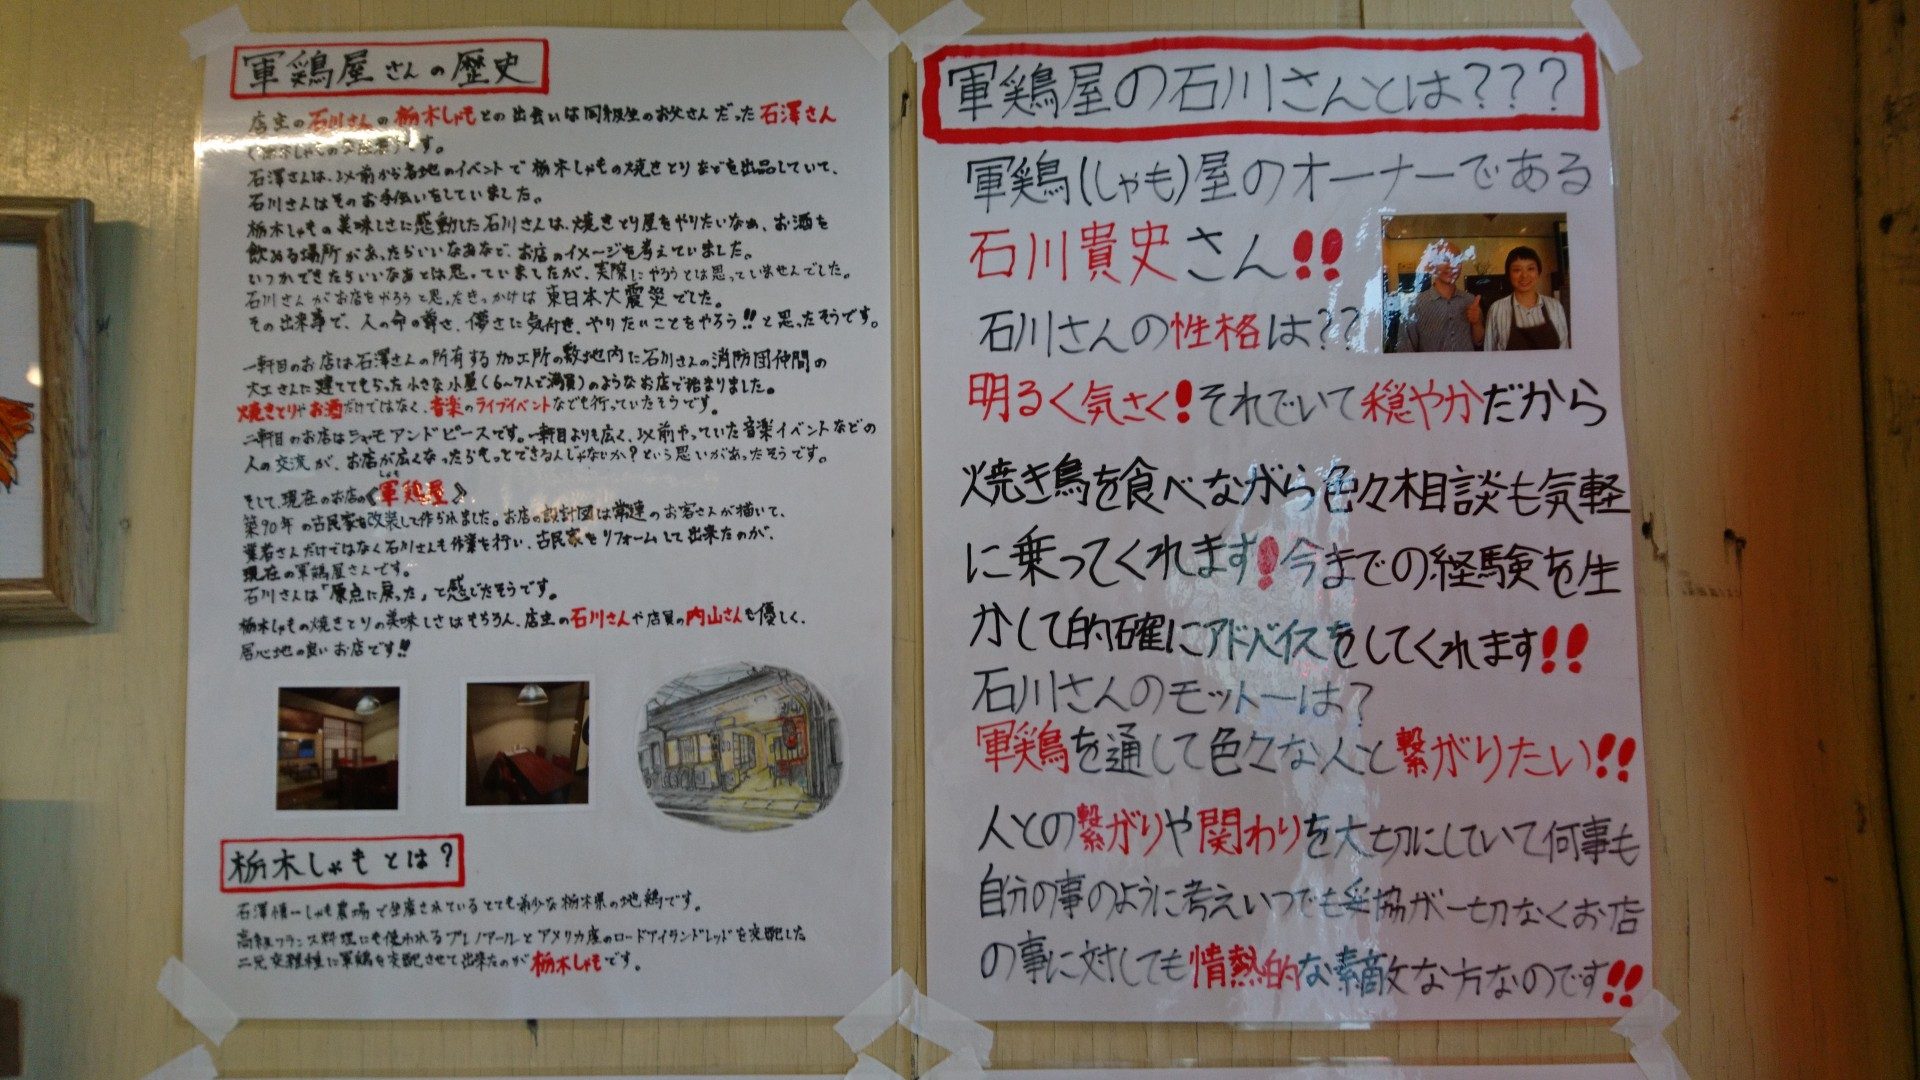 軍鶏屋さんの歴史
店主の石川さんの栃木しゃもとの出会いは同級生のお父さんだった石澤さん
です。
石澤さんは、以前から各地のイベントで栃木しゃもの焼きとりなどを出品していて、
石川さんはそのお手伝いをしていました。
栃木しゃもの美味しさに感動した石川さんは、焼きとり屋をやりたいなぁ、お酒を
飲める場所があったらいいなぁなど、お店のイメージを考えていました。
いつかできたらいいなぁとは思っていましたが、実際にやろうとは思っていませんでした。
石川さんがお店をやろうと思ったきっかけは東日本大震災でした。
その出来事で、人の命の尊さ、儚さに気付き、やりたいことをやろう!!と思ったそうです。
一軒目のお店は石澤さんの所有する加工所の敷地内に石川さんの消防団仲間の
大工さんに建ててもらった小さな小屋(6〜7人で満員)のようなお店で始まりました。
焼きとりやお酒だけではなく、音楽のライブイベントなども行っていたそうです。
二軒目のお店はシャモアンドピースです。一軒目よりも広く、以前やっていた音楽イベントなどの
人の交流が、お店が広くなったらもっとできるんじゃないか?という思いがあったそうです。
そして、現在のお店の《軍鶏屋》
築90年の古民家を改装して作られました。お店の設計図は常連のお客さんが描いて、
業者さんだけではなく石川さんも作業を行い、古民家をリフォームして出来たのが、
現在の軍鶏屋さんです。
石川さんは「原点に戻った」と感じたそうです。
栃木しゃもの焼きとりの美味しさはもちろん、店主の石川さんや店員の内山さんも優しく、
居心地の良いお店です!!
栃木しゃもとは?
石澤慎一しゃも農場で生産されているとても希少な栃木県の地鶏です。
高級フランス料理にも使われるプレノアールとアメリカ産のロードアイランドレッドを交配した
二元交雑種に軍鶏を交配させて出来たのが栃木しゃもです。
軍鶏屋の石川さんとは???
軍鶏(しゃも)屋のオーナーである
石川貴史さん!!
石川さんの性格は??
明るく気さく!それでいて穏やかだから
焼き鳥を食べながら色々相談も気軽
に乗ってくれます!今までの経験を生
かして的確にアドバイスをしてくれます!!
石川さんのモットーは?
軍鶏を通して色々な人と繋がりたい!!
人との繋がりや関わりを大切にしていて何事も
自分の事のように考えいつでも妥協が一切なくお店
の事に対しても情熱的な素敵な方なのです!!